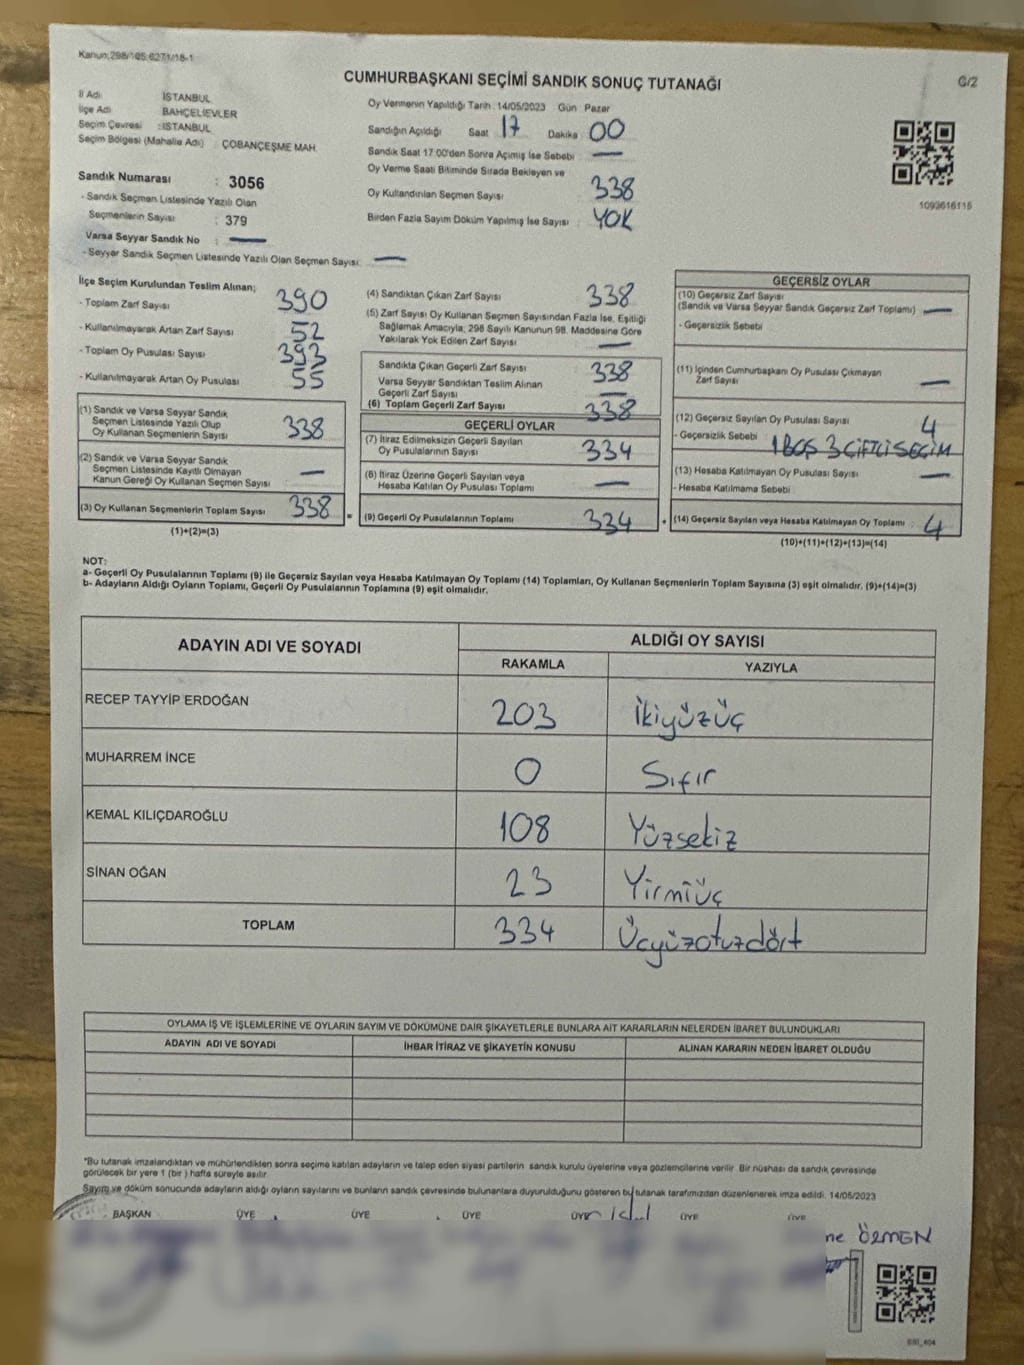 Kanun:298/105 6271/18-1
CUMHURBAŞKANI SEÇİMİ SANDIK SONUÇ TUTANAĞI
G/2
İl Adı İSTANBUL
İlçe Adı BAHÇELİEVLER
Seçim Çevresi :İSTANBUL
Seçim Bölgesi (Mahalle Adı) : ÇOBANÇEŞME MAH.
Sandık Numarası : 3056
- Sandık Seçmen Listesinde Yazılı Olan
Seçmenlerin Sayısı : 379
Varsa Seyyar Sandık No : —
- Seyyar Sandık Seçmen Listesinde Yazılı Olan Seçmen Sayısı: —
Oy Vermenin Yapıldığı Tarih : 14/05/2023 Gün Pazar
Sandığın Açıldığı Saat 17 Dakika 00
Sandık Saat 17:00'den Sonra Açımış İse Sebebi : —
Oy Verme Saati Bitiminde Sırada Bekleyen ve
Oy Kullandırılan Seçmen Sayısı : 338
Birden Fazla Sayım Döküm Yapılmış İse Sayısı : YOK
1093616115
İlçe Seçim Kurulundan Teslim Alınan;
- Toplam Zarf Sayısı 390
- Kullanılmayarak Artan Zarf Sayısı 52
- Toplam Oy Pusulası Sayısı 393
- Kullanılmayarak Artan Oy Pusulası 55
(1) Sandık ve Varsa Seyyar Sandık
Seçmen Listesinde Yazılı Olup
Oy Kullanan Seçmenlerin Sayısı 338
(2) Sandık ve Varsa Seyyar Sandık
Seçmen Listesinde Kayıtlı Olmayan
Kanun Gereği Oy Kullanan Seçmen Sayısı : —
(3) Oy Kullanan Seçmenlerin Toplam Sayısı 338 =
(1)+(2)=(3)
(4) Sandıktan Çıkan Zarf Sayısı 338
(5) Zarf Sayısı Oy Kullanan Seçmen Sayısından Fazla İse, Eşitliği
Sağlamak Amacıyla; 298 Sayılı Kanunun 98. Maddesine Göre
Yakılarak Yok Edilen Zarf Sayısı —
Sandıkta Çıkan Geçerli Zarf Sayısı 338
Varsa Seyyar Sandıktan Teslim Alınan
Geçerli Zarf Sayısı —
(6) Toplam Geçerli Zarf Sayısı 338
GEÇERLİ OYLAR
(7) İtiraz Edilmeksizin Geçerli Sayılan
Oy Pusulalarının Sayısı 334
(8) İtiraz Üzerine Geçerli Sayılan veya
Hesaba Katılan Oy Pusulası Toplamı —
(9) Geçerli Oy Pusulalarının Toplamı 334 +
GEÇERSİZ OYLAR
(10) Geçersiz Zarf Sayısı
(Sandık ve Varsa Seyyar Sandık Geçersiz Zarf Toplamı) —
- Geçersizlik Sebebi
(11) İçinden Cumhurbaşkanı Oy Pusulası Çıkmayan
Zarf Sayısı —
(12) Geçersiz Sayılan Oy Pusulası Sayısı 4
- Geçersizlik Sebebi : 1 BOŞ 3 ÇİFTLİ SEÇİM
(13) Hesaba Katılmayan Oy Pusulası Sayısı —
- Hesaba Katılmama Sebebi :
(14) Geçersiz Sayılan veya Hesaba Katılmayan Oy Toplamı : 4
(10)+(11)+(12)+(13)=(14)
NOT:
a- Geçerli Oy Pusulalarının Toplamı (9) ile Geçersiz Sayılan veya Hesaba Katılmayan Oy Toplamı (14) Toplamları, Oy Kullanan Seçmenlerin Toplam Sayısına (3) eşit olmalıdır. (9)+(14)=(3)
b- Adayların Aldığı Oyların Toplamı, Geçerli Oy Pusulalarının Toplamına (9) eşit olmalıdır.
ADAYIN ADI VE SOYADI ALDIĞI OY SAYISI
RAKAMLA YAZIYLA
RECEP TAYYİP ERDOĞAN 203 İkiyüzüç
MUHARREM İNCE 0 Sıfır
KEMAL KILIÇDAROĞLU 108 Yüzsekiz
SİNAN OĞAN 23 Yirmiüç
TOPLAM 334 Üçyüzotuzdört
OYLAMA İŞ VE İŞLEMLERİNE VE OYLARIN SAYIM VE DÖKÜMÜNE DAİR ŞİKAYETLERLE BUNLARA AİT KARARLARIN NELERDEN İBARET BULUNDUKLARI
ADAYIN ADI VE SOYADI İHBAR İTİRAZ VE ŞİKAYETİN KONUSU ALINAN KARARIN NEDEN İBARET OLDUĞU
*Bu tutanak imzalandıktan ve mühürlendikten sonra seçime katılan adayların ve talep eden siyasi partilerin sandık kurulu üyelerine veya gözlemcilerine verilir. Bir nüshası da sandık çevresinde
görülecek bir yere 1 (bir ) hafta süreyle asılır.
Sayım ve döküm sonucunda adayların aldığı oyların sayılarını ve bunların sandık çevresinde bulunanlara duyurulduğunu gösteren bu tutanak tarafımızdan düzenlenerek imza edildi. 14/05/2023
BAŞKAN ÜYE ÜYE ÜYE ÜYE ÜYE ÜYE
ne ÖZMEN